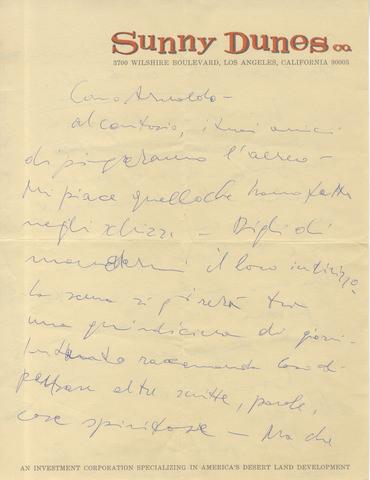 Sunny Dunes co.
3700 WILSHIRE BOULEVARD, LOS ANGELES, CALIFORNIA 90005
Caro Arnoldo –
al contrario, i tuoi amici
dipingeranno l'aereo –
Mi piace quello che hanno fatto
negli schizzi – Digli di
mandarmi il loro indirizzo.
La scena si girerà tra
una quindicina di giorni.
raccomanda loro di
altre scritte, parole,
cose spiritose – Ma che
AN INVESTMENT CORPORATION SPECIALIZING IN AMERICA'S DESERT LAND DEVELOPMENT